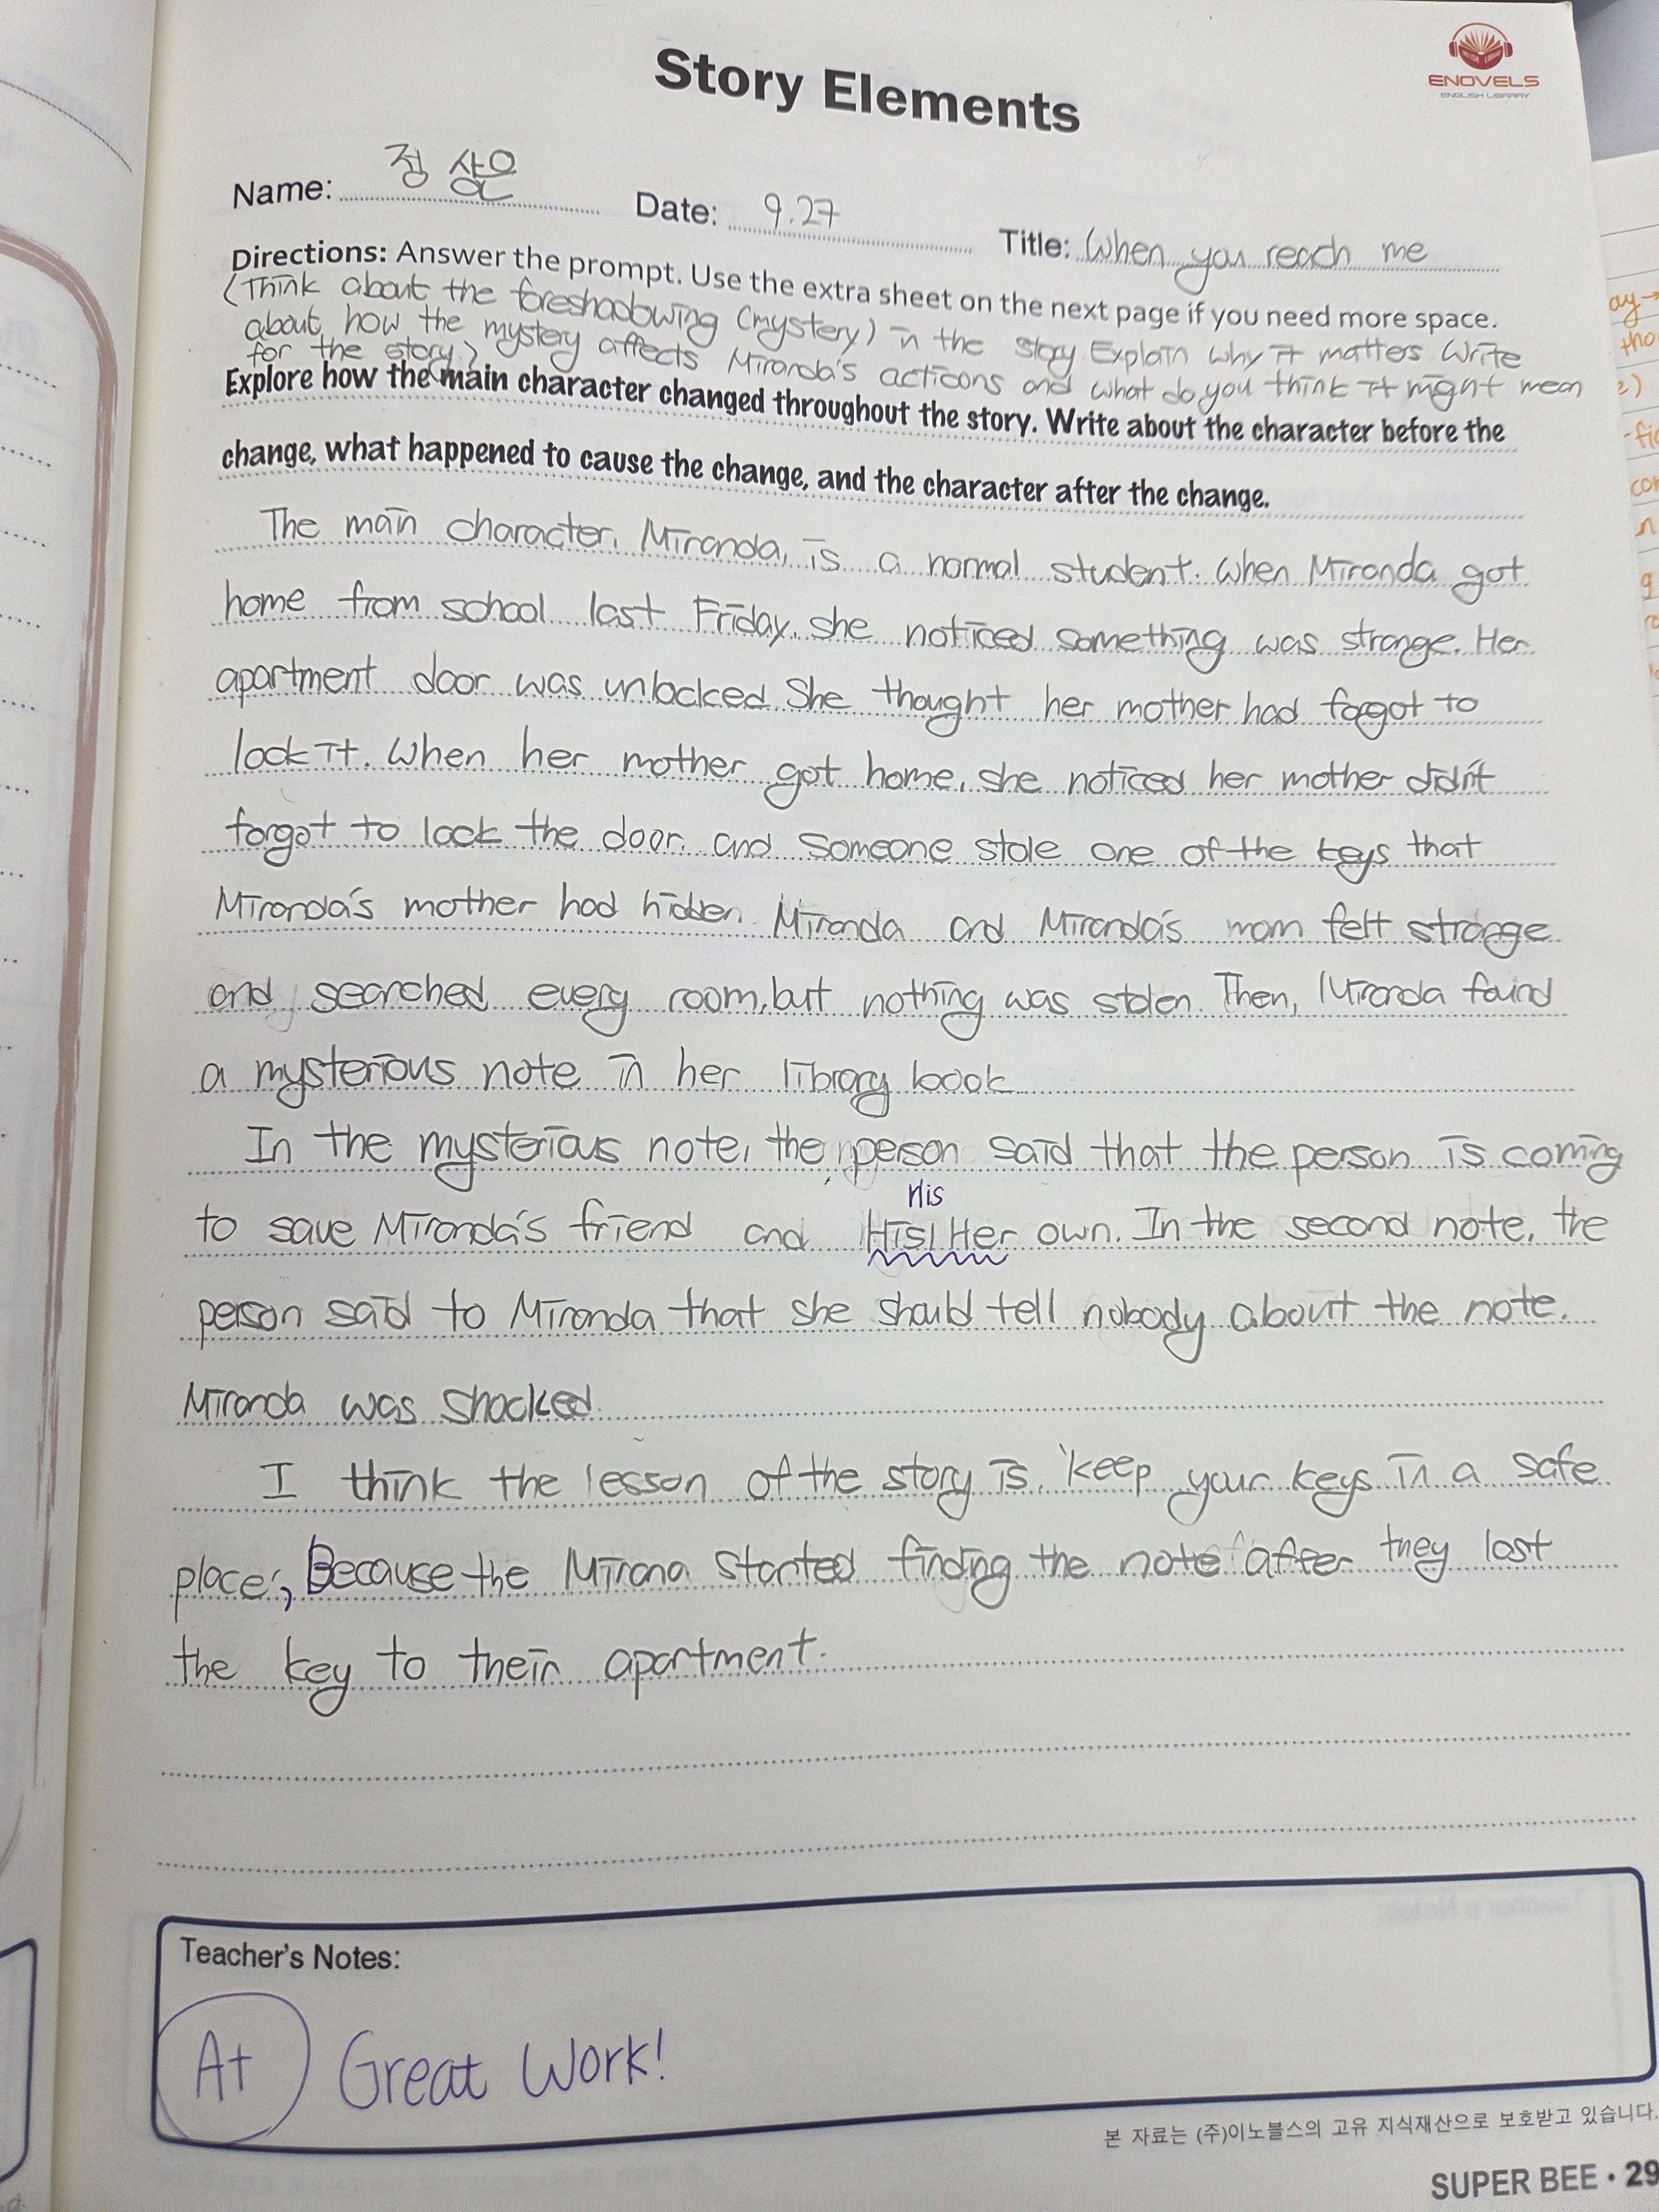 ENOVELS
ENGLISH LIBRARY
Story Elements
Name: 정 상윤
Date: 9.27
Title: When you reach me
Directions: Answer the prompt. Use the extra sheet on the next page if you need more space.
(Think about the foreshadowing (mystery) in the story Explain why it matters Write
about how the mystery affects Miranda's acticons and what do you think it might mean
for the story.)
Explore how the main character changed throughout the story. Write about the character before the
change, what happened to cause the change, and the character after the change.
The main character, Miranda, is a normal student. When Miranda got
home from school last Friday, she noticed something was strange. Her
apartment door was unlocked. She thought her mother had forgot to
lock it. When her mother got home, she noticed her mother didn't
forgot to lock the door. and someone stole one of the keys that
Miranda's mother had hidden. Miranda and Miranda's mom felt strange
and searched every room, but nothing was stolen. Then, Miranda found
a mysterious note in her library book
In the mysterious note, the person said that the person is coming
His
to save Miranda's friend and His/Her own. In the second note, the
person said to Miranda that she should tell nobody about the note.
Miranda was shocked.
I think the lesson of the story is, 'keep your keys in a safe
place', Because the Mirana started finding the note after they lost
the key to their apartment.
Teacher's Notes:
A+ Great Work!
본 자료는 (주)이노블스의 고유 지식재산으로 보호받고 있습니다.
SUPER BEE • 29